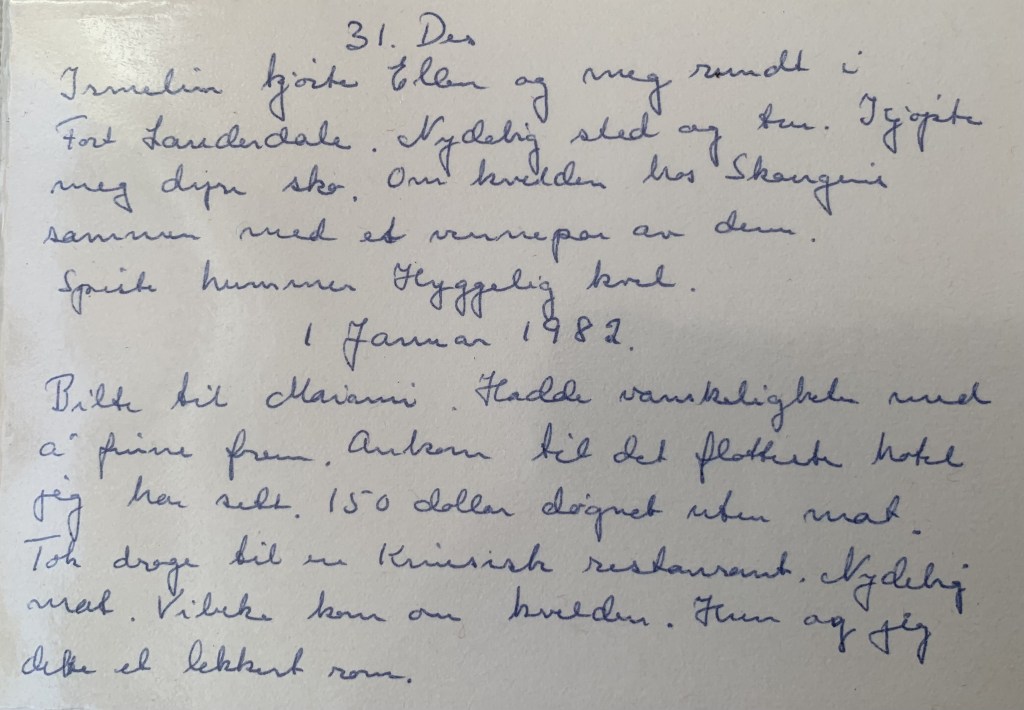 31. Des
Irmelin kjørte Ellen og meg rundt i
Fort Lauderdale. Nydelig sted og tur. Kjøpte
meg dyre sko. Om kvelden hos Skaugens
sammen med et vennepar av dem.
Spiste hummer Hyggelig kveld.
1 Januar 1982.
Bilte til Maiami. Hadde vanskeligheter med
å finne frem. Ankom til det flotteste hotel
jeg har sett. 150 dollar døgnet uten mat.
Tok droge til en Kinesisk restaurant. Nydelig
mat. Vibeke kom om kvelden. Hun og jeg
delte et lekkert rom.